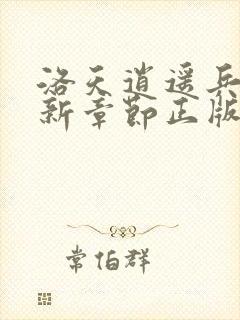 洛天逍遥兵
新章节正版
常伯群